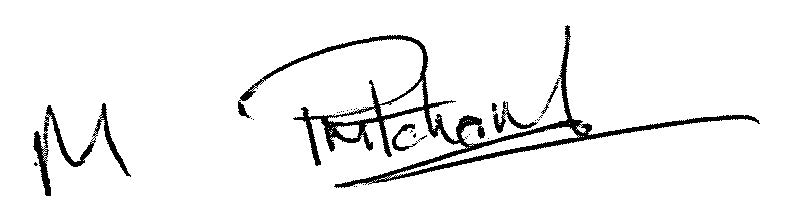 M Pritchard